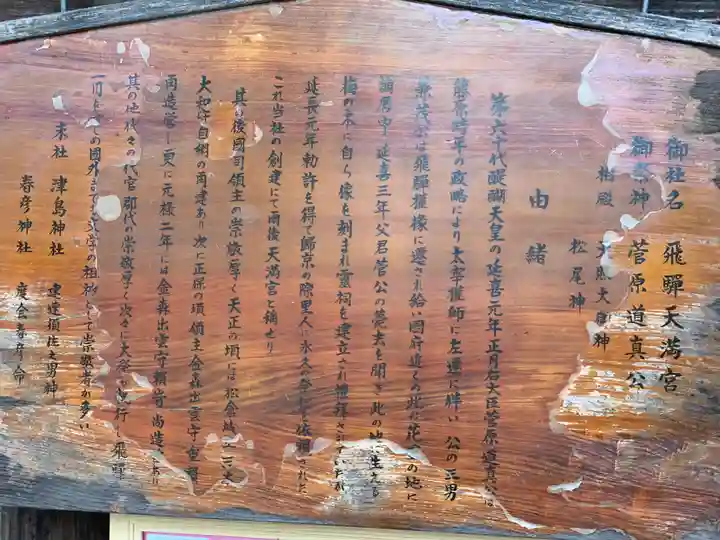 御社名 飛騨天満宮
御祭神 菅原道真公
相殿 天照大皇神
松尾神
由緒
第六十代醍醐天皇の延喜元年正月右大臣菅原道真公は
藤原時平の政略により太宰権師に左遷に伴い 公の三男
兼茂公は飛騨権掾に遷され給い国府近くの此に花の地に
謫居中 延喜三年父君菅公の薨去を聞き此の地に生える
梅の木に自ら像を刻まれ霊祠を建立され
延長元年勅許を得て帰京の際里人に永久の祭祀を依頼された
これ当社の創建にて爾後 天満宮と称せり
其の後国司領主の崇敬厚く天正の頃には松倉城
大和守自綱の再建あり 次に正保の頃 領主金森出雲守重頼
再造営し 更に元禄二年には金森出雲守頼旹 造営あり
其の他代々の代官郡代の崇敬厚く次々に大祭も 行し飛騨
一円もとより国外まで文学の祖神として崇敬者が多い
末社 津島神社 建速須佐之男神
春彦神社 度会春彦命